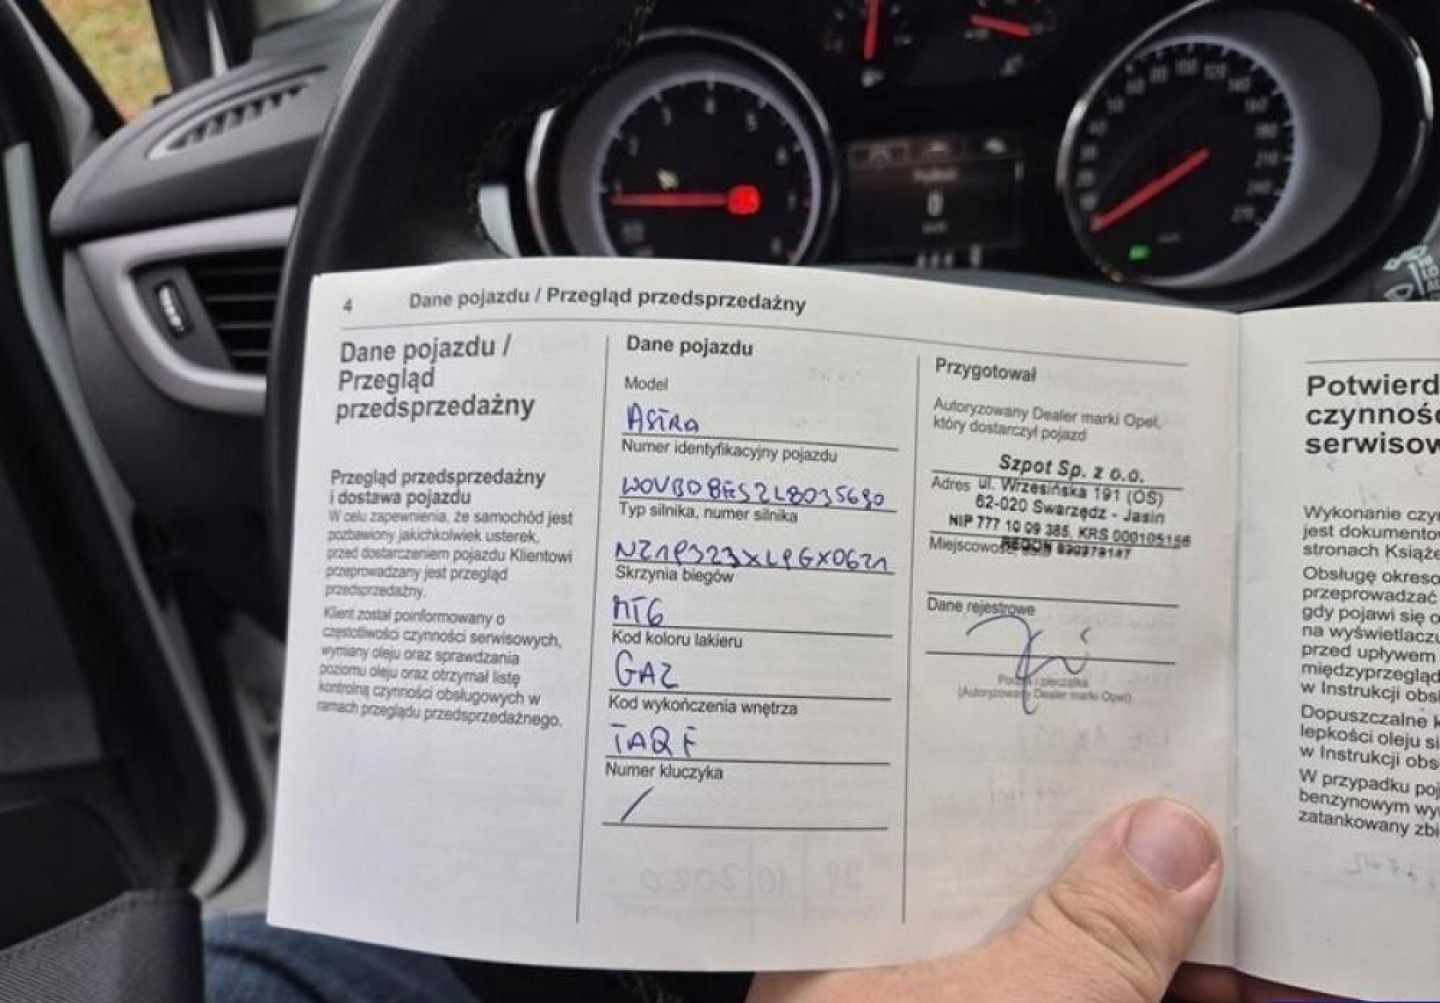 4 Dane pojazdu / Przegląd przedsprzedażny
Dane pojazdu /
Przegląd
przedsprzedażny
Przegląd przedsprzedażny
i dostawa pojazdu
W celu zapewnienia, że samochód jest
pozbawiony jakichkolwiek usterek,
przed dostarczeniem pojazdu Klientowi
przeprowadzany jest przegląd
przedsprzedażny.
Klient został poinformowany o
częstotliwości czynności serwisowych,
wymiany oleju oraz sprawdzania
poziomu oleju oraz otrzymał listę
kontrolną czynności obsługowych w
ramach przeglądu przedsprzedażnego.
Dane pojazdu
Model
ASTRA
Numer identyfikacyjny pojazdu
W0VBD8ES2L8035690
Typ silnika, numer silnika
Skrzynia biegów
MT6
Kod koloru lakieru
GAZ
Kod wykończenia wnętrza
TAQF
Numer kluczyka
/
Przygotował
Autoryzowany Dealer marki Opel,
który dostarczył pojazd
Szpot Sp. z o.o.
Adres ul. Wrzesińska 191 (OS)
62-020 Swarzędz - Jasin
NIP 777 10 09 385, KRS 000105156
Miejscowość REGON
Dane rejestrowe
(Autoryzowany Dealer marki Opel)
Potwierd
czynnośc
serwisow
Wykonanie czyn
jest dokumentow
stronach Książe
Obsługę okreso
przeprowadzać
gdy pojawi się o
na wyświetlaczu
przed upływem
międzyprzegląd
w Instrukcji obs
Dopuszczalne k
lepkości oleju si
w Instrukcji obs
W przypadku poj
benzynowym wy
zatankowany zbi